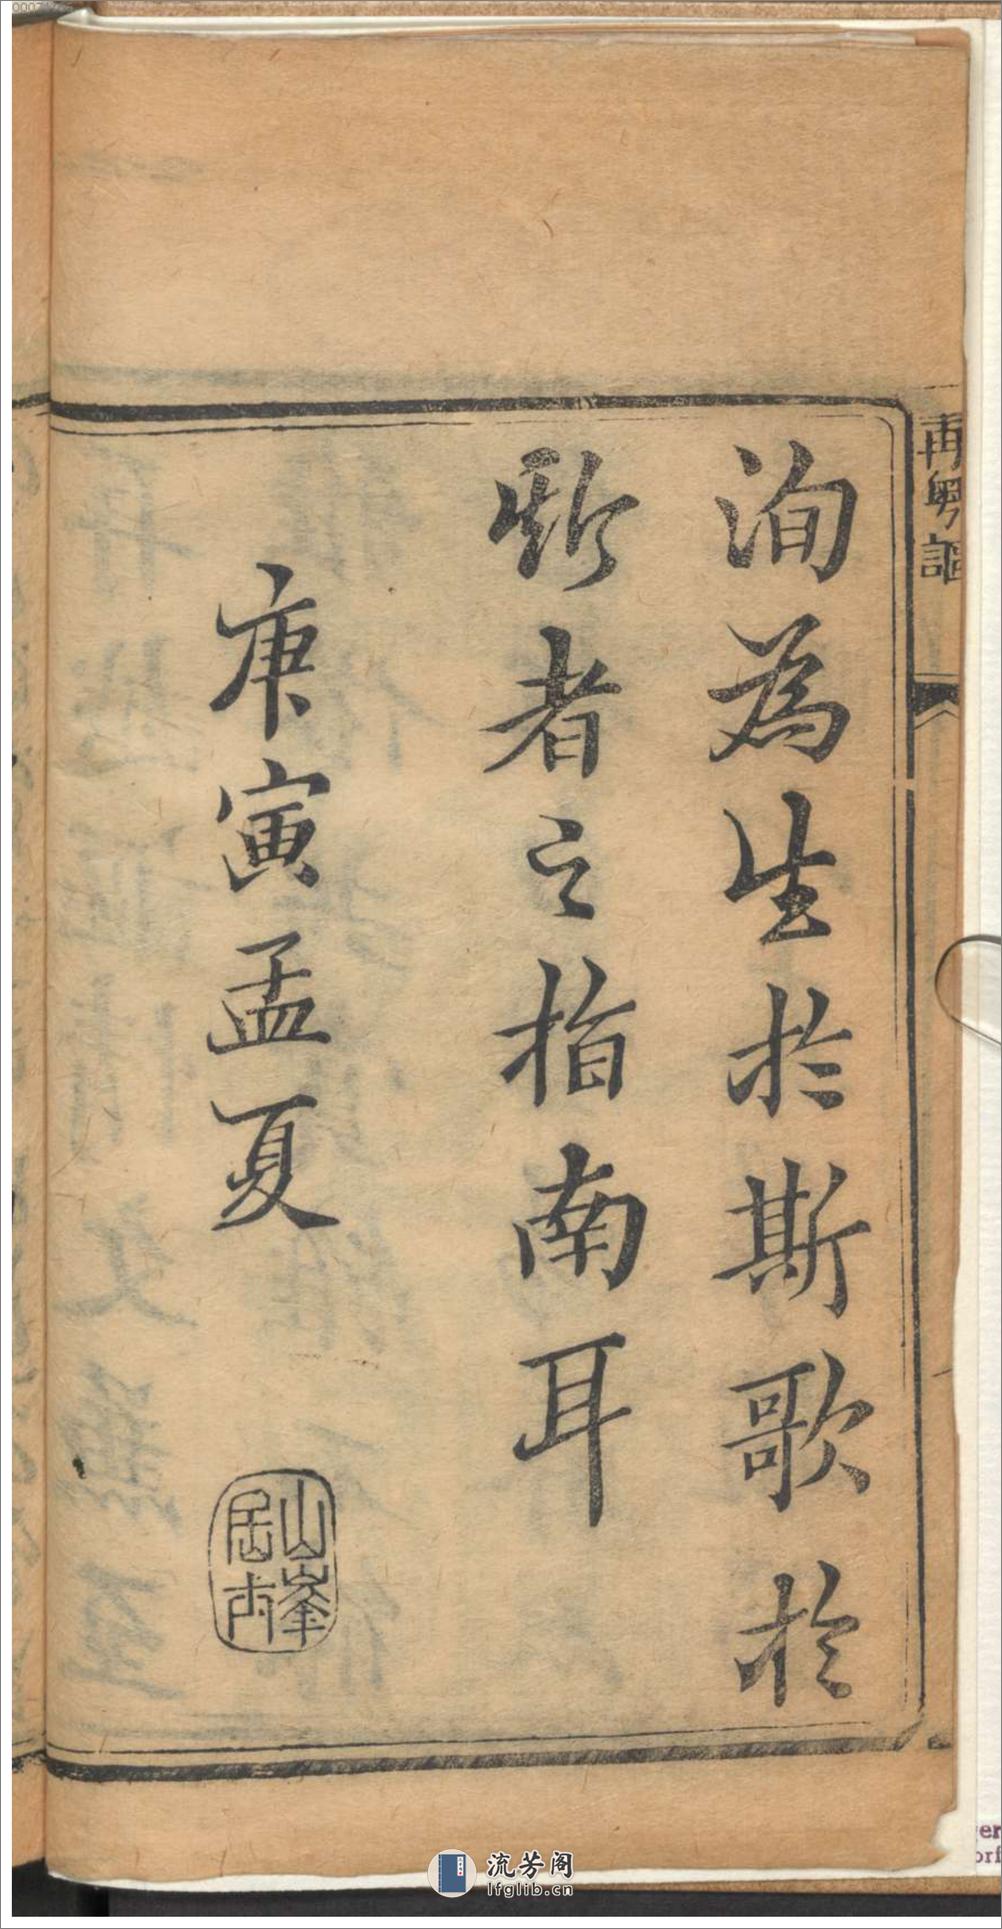 再粵謳
洵為生於斯歌於
斯者之指南耳
庚寅孟夏
山峯
流芳阁
lfglib.cn